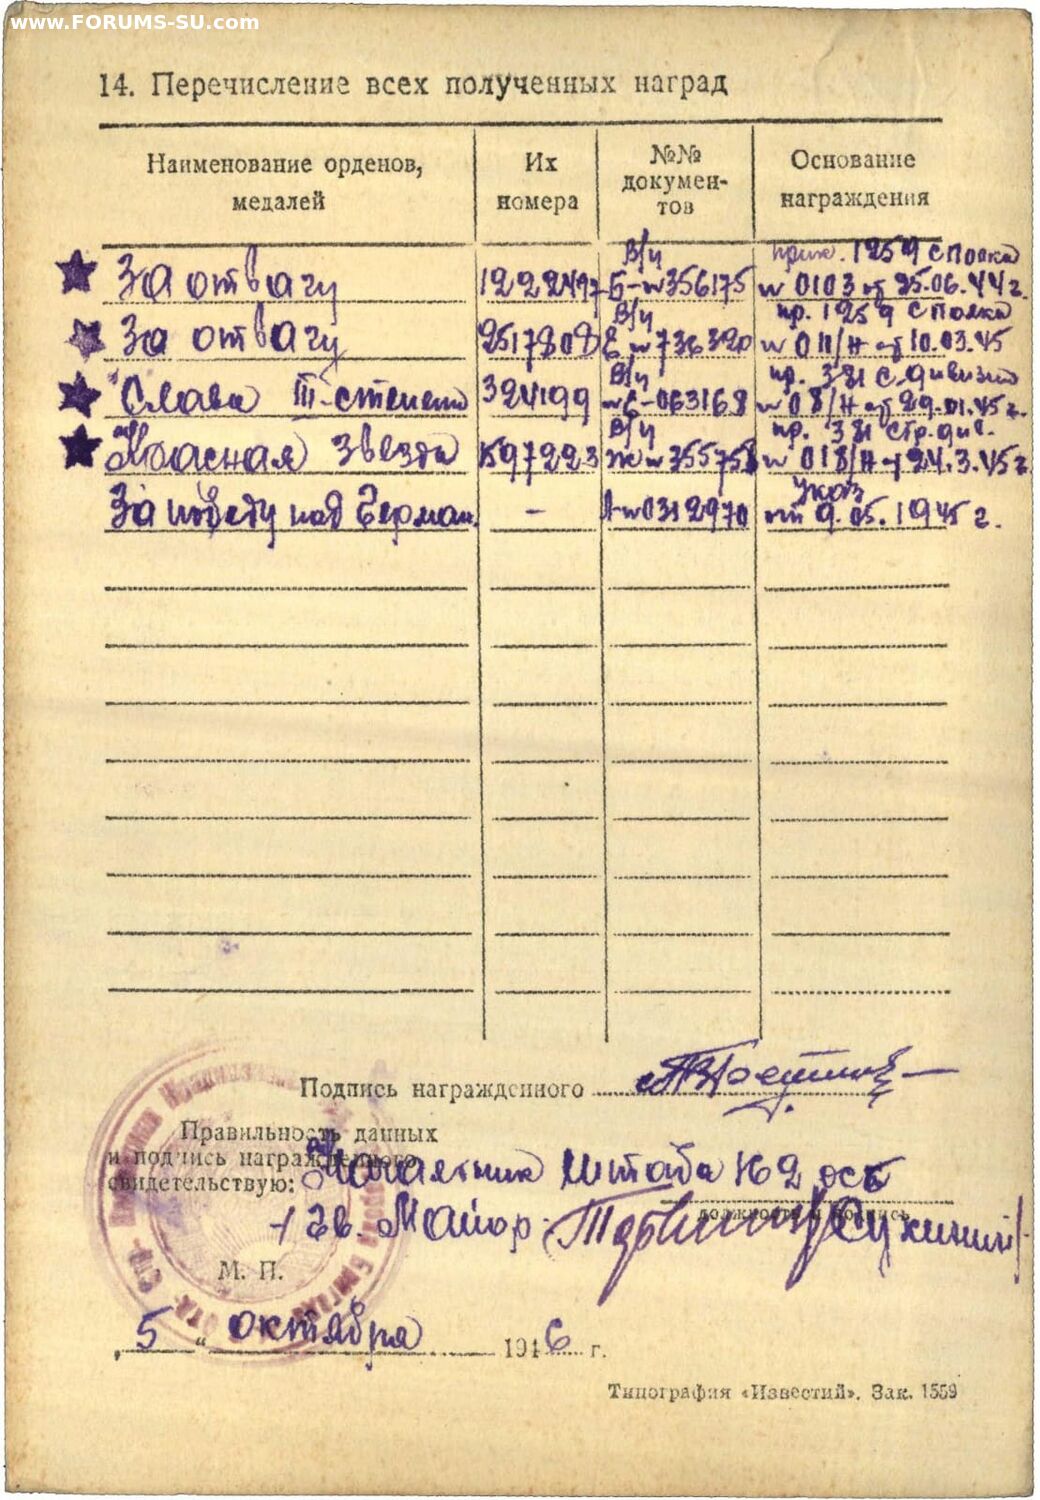 www.FORUMS-SU.com
14. Перечисление всех полученных наград
Наименование орденов, медалей
Их номера
№№ документов
Основание награждения
За отвагу 1222497 В/у Б-№356175 прик. 1259 с полка № 0103 от 25.06.44 г.
За отвагу 2517808 В/у Е №736320 пр. 1259 с полка № 011/н от 10.03.45
Слава III-степени 324199 В/у №Е-063168 пр. 381 с. дивизии № 08/н от 29.01.45 г.
Красная звезда 1597223 В/у Ж №355758 пр. 381 стр. див. № 018/н от 24.3.45 г
За победу над Герман. – А-№0312970 указ от 9.05.1945 г.
Подпись награжденного
Правильность данных
и подпись награжденного
свидетельствую: Начальник Штаба 162 осб
должность и подпись
Гв. Майор
М. П.
„5“ октября 1946 г.
Типография «Известий». Зак. 1559